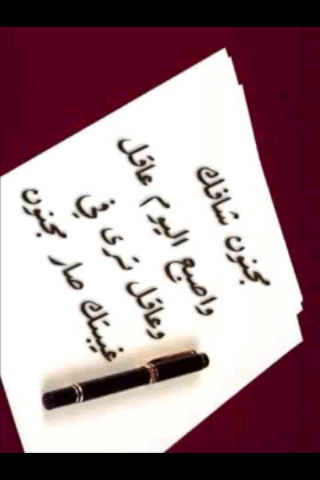 مجنون شافك
واصبح اليوم عاقل
وعاقل ترى في
غيبتك صار مجنون